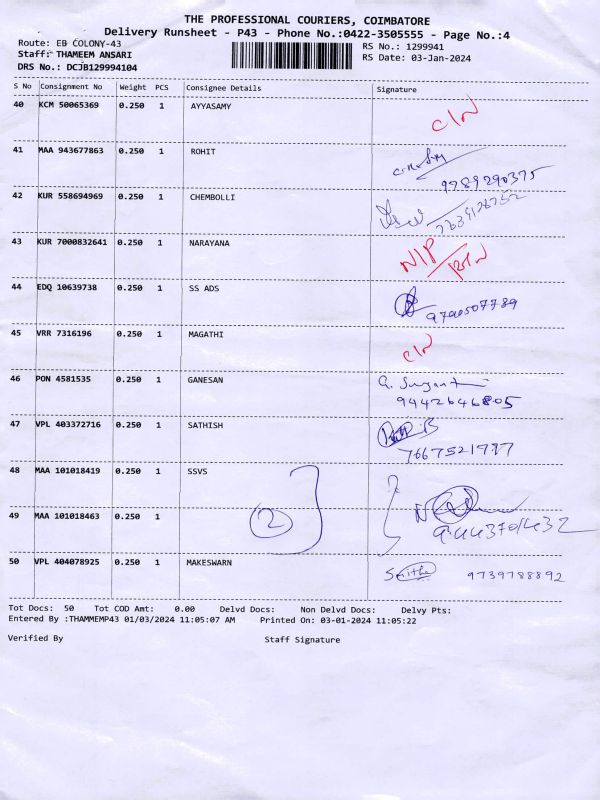 THE PROFESSIONAL COURIERS, COIMBATORE
Delivery Runsheet - P43 - Phone No.:0422-3505555 - Page No.:4
Route: EB COLONY-43 RS No.: 1299941
Staff: THAMEEM ANSARI RS Date: 03-Jan-2024
DRS No.: DCJB129994104
S No Consignment No Weight PCS Consignee Details Signature
40 KCM 50065369 0.250 1 AYYASAMY
41 MAA 943677863 0.250 1 ROHIT
9789290375
42 KUR 558694969 0.250 1 CHEMBOLLI
43 KUR 7000832641 0.250 1 NARAYANA
44 EDQ 10639738 0.250 1 SS ADS
9790507789
45 VRR 7316196 0.250 1 MAGATHI
46 PON 4581535 0.250 1 GANESAN
9442646805
47 VPL 403372716 0.250 1 SATHISH
48 MAA 101018419 0.250 1 SSVS
49 MAA 101018463 0.250 1 2
50 VPL 404078925 0.250 1 MAKESWARN
9739788892
Tot Docs: 50 Tot COD Amt: 0.00 Delvd Docs: Non Delvd Docs: Delvy Pts:
Entered By :THAMMEMP43 01/03/2024 11:05:07 AM Printed On: 03-01-2024 11:05:22
Verified By Staff Signature